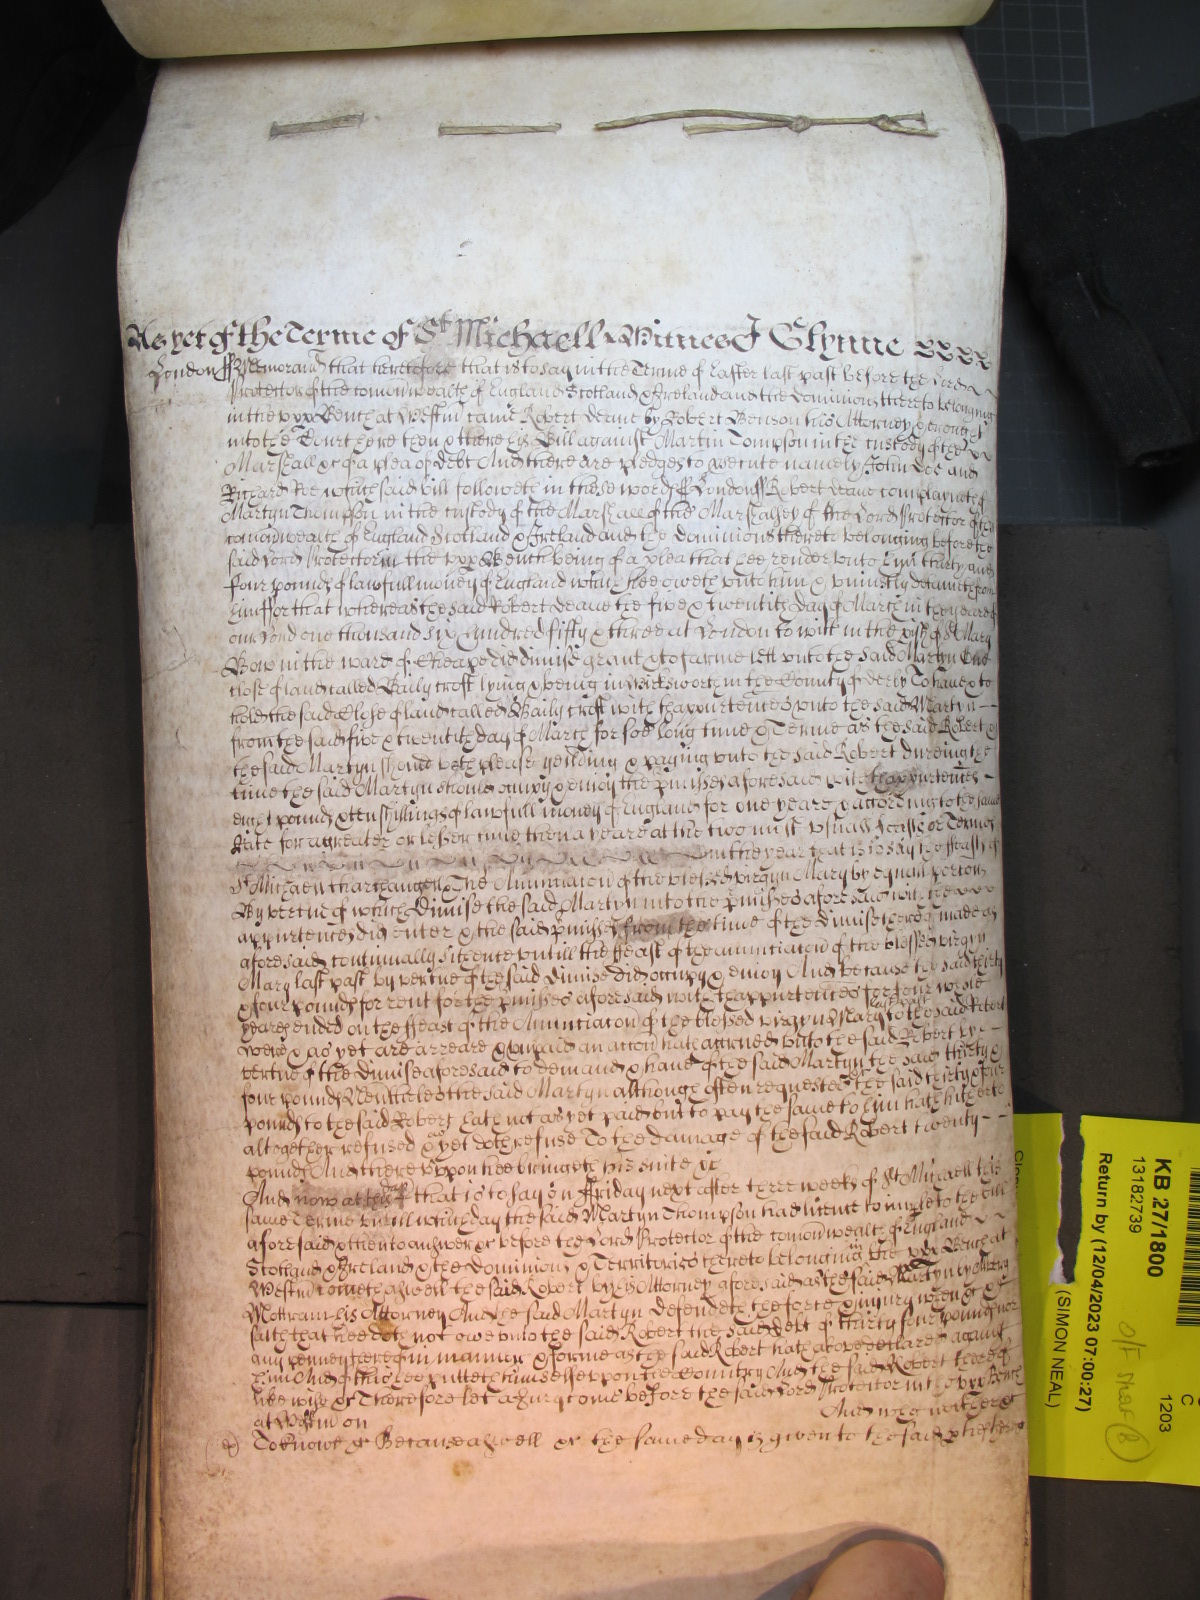 As yet of the Terme of St Michaell Witnes J Glynne
London ss Memorand that heretofore that is to say in the Terme of Easter last past before the Lord
Protector of the comonwealth of England Scotland & Ireland and the Dominions thereto belonging
in the upp Bench at Westm came Robert Deane by Robert Benson his Attorney & brought
into the Court here then & there his Bill against Martin Tompson in the custody of the
Marshall &c of a plea of debt And there are pledges to psecute namely John Doe and
Richard Roe which said bill followeth in these words ss London ss Robert Deane complayneth of
Martyn Thompson in the custody of the Marshall of the Marshalsey of the Lord Protector of the
comonwealth of England Scotland & Ireland and the Dominions thereto belonging before the
said Lord Protector in the upp Bench being of a plea that hee render unto him thirty and
foure pounds of lawfull money of England which hee oweth unto him & uniustly detaineth from
him ffor that whereas the said Robert Deane the five & twentith day of March in the yeare of
our Lord one thousand six hundred fifty & three at London to witt in the pish of St Mary
Bow in the ward of Cheape did dimise grant & to farme lett unto the said Martyn One
close of land called Baily croft lying & being in Wicksworth in the County of derby To have & to
hold the said Close of land called Baily croft with thappurtences unto the said Martyn
from the said five & twentith day of March for soe long time & Terme as the said Robert &
the said Martyn should both please yeilding & paying unto the said Robert dureing the
time the said Martyn should occupy & enioy the pmisses aforesaid with thappurtences
eight pounds & ten shillings of lawfull money of England for one yeare & according to the same
Rate for a greater or lesser time then a yeare at the two most usuall feasts or Termes
in the year that is to say the feasts of
St Michaell tharchangell & The Anunciacon of the blessed virgyn Mary by equall porcons
By vertue of which Dimise the said Martyn into the pmisses aforesaid with the
appurtences did enter & the said pmisses from the time of the dimise thereof made as
aforesaid continually sithence untill the ffeast of the anunciacon of the blessed virgyn
Mary last past by vertue of the said Dimise did occupy & enioy And because the said thirty
& four pounds for rent for the pmisses aforesaid with thappurtences for four whole
yeares ended on the ffeast of the Anunciacon of the blessed virgyn Mary last past to the said Robert
were & as yet are arreare & unpaid an accon hath accrued unto the said Robert by
vertue of the dimise aforesaid to demand & have of the said Martyn the said thirty &
four pounds Neverthelesse the said Martyn although often requested the said thirty & four
pounds to the said Robert hath not as yet paid but to pay the same to him hath hitherto
altogether refused & as yet doth refuse To the damage of the said Robert twenty
pounds And thereuppon hee bringeth his suite &c
And now at this day that is to say on ffriday next after three weeks of St Michaell this
same Terme untill which day the said Martyn Thompson had licence to imparle to the bill
aforesaid & then to answer &c before the Lord Protector of the comonwealth of England
Scotland & Ireland & the Dominions & Territories thereto belonging in the upp Bench at
Westm cometh aswell the said Robert by his Attorney aforesaid as the said Martyn by
Mottram his Attorney And the said Martyn defendeth the force & iniury when &c &
saith that hee doth not owe unto the said Robert the said debt of thirty four pounds nor
any penney thereof in manner & forme as the said Robert hath above declared against
him And of this hee putteth himselfe upon the Country And the said Robert thereof
likewise &c Therefore let a Jury come before the said Lord Protector in the upp Bench
at Westm on And who neither &c
To knowe &c Because aswell &c the same day is given to the said pties there
KB 27/1800
13182739
Return by (12/04/2023 07:00:27)
(SIMON NEAL)
C
1203